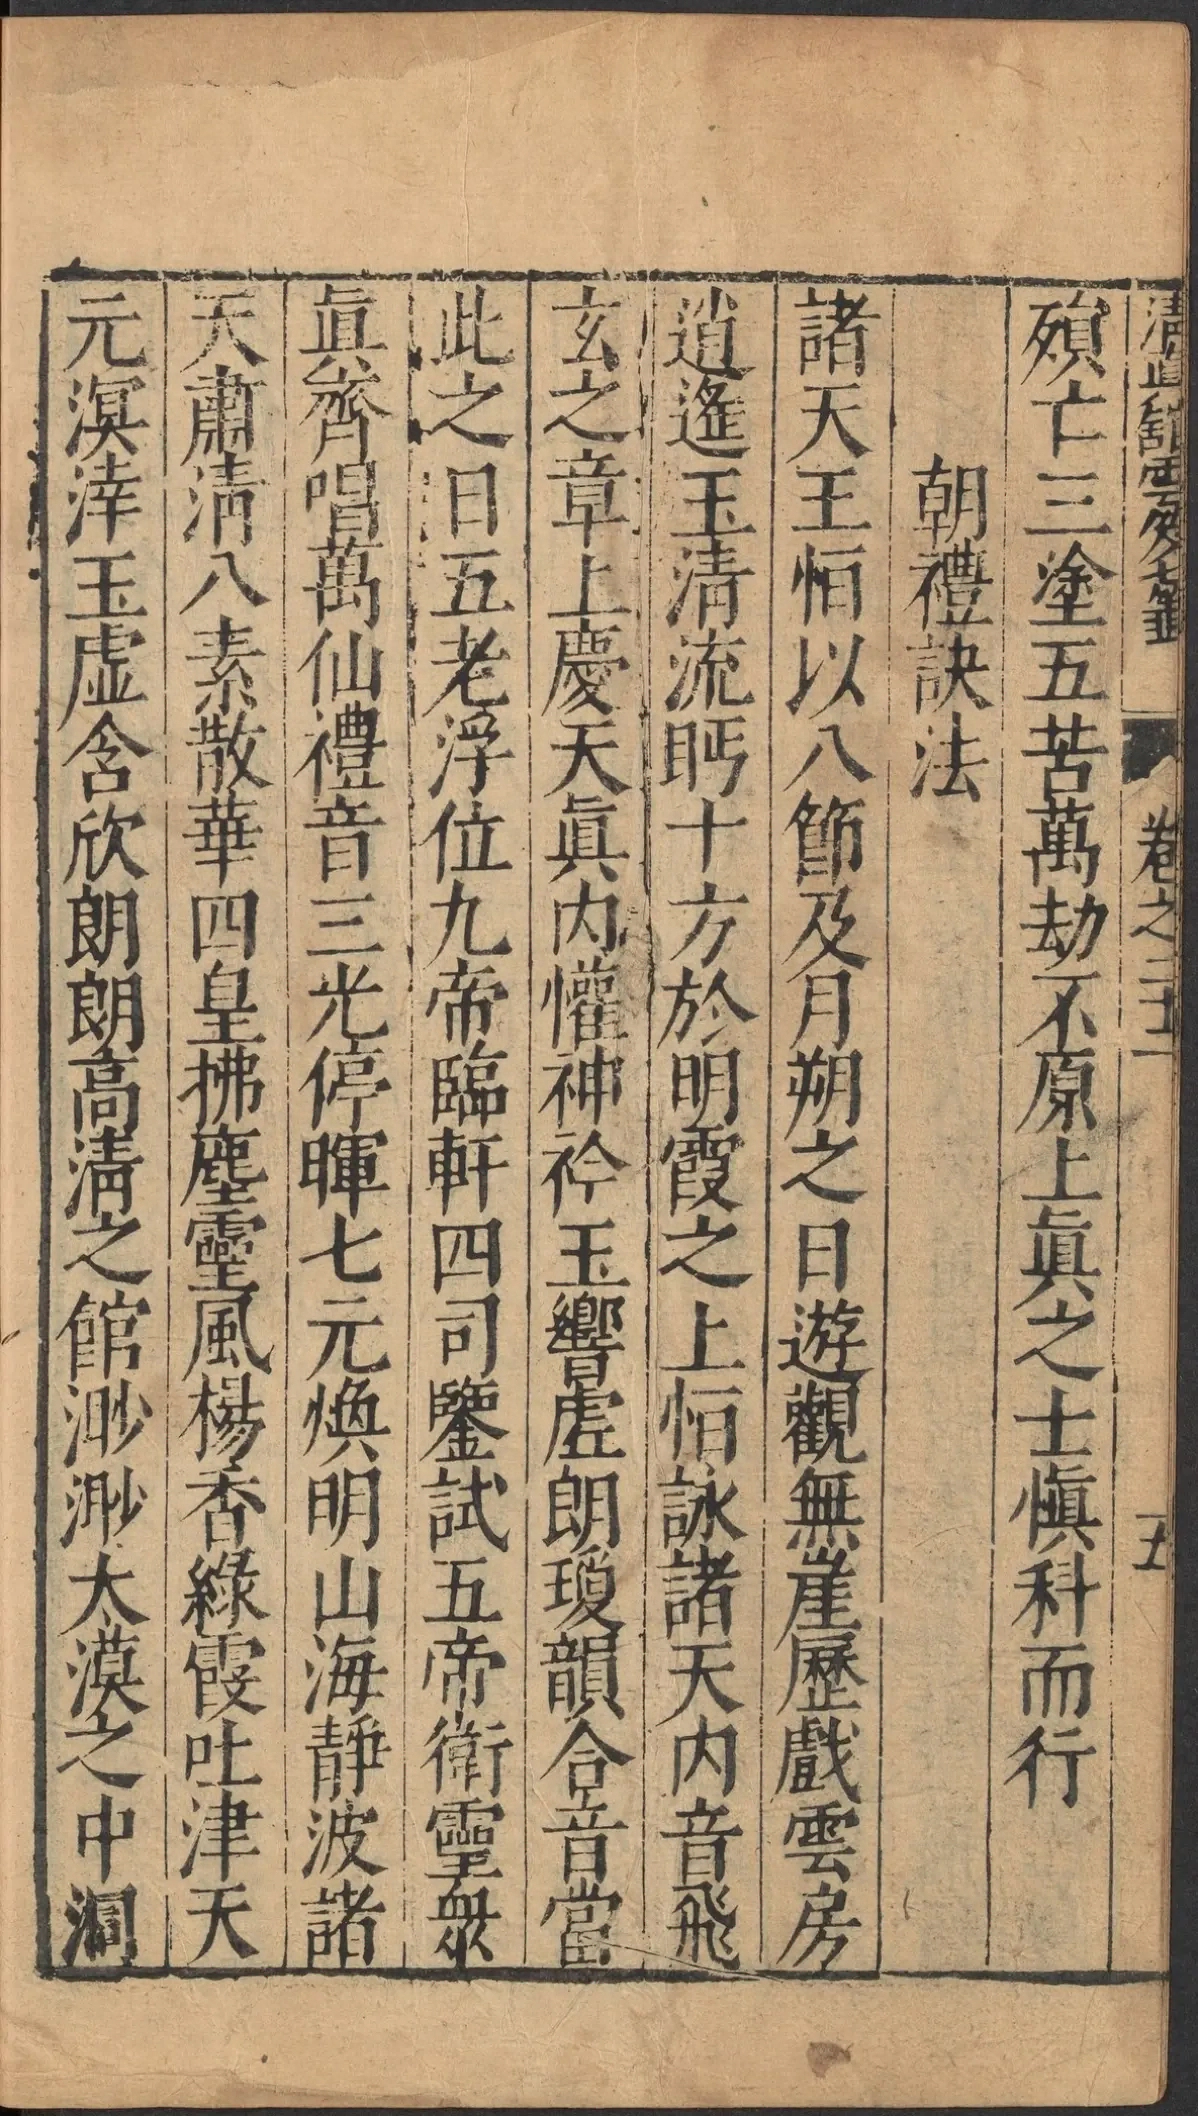 清眞館雲笈籤 卷之五十一 五
殞亡三塗五苦萬劫不原上眞之士愼科而行
朝禮訣法
諸天王恒以八節及月朔之日遊觀無崖歷戲雲房
逍遙玉清流眄十方於明霞之上恒詠諸天内音飛
玄之章上慶天眞内懽神衿玉響虛朗瓊韻合音當
此之日五老浮位九帝臨軒四司鑒試五帝衛靈衆
眞齊唱萬仙禮音三光停暉七元煥明山海靜波諸
天肅清八素散華四皇拂塵靈風楊香綠霞吐津天
元溟涬玉虛含欣朗朗高清之館渺渺太漠之中洞